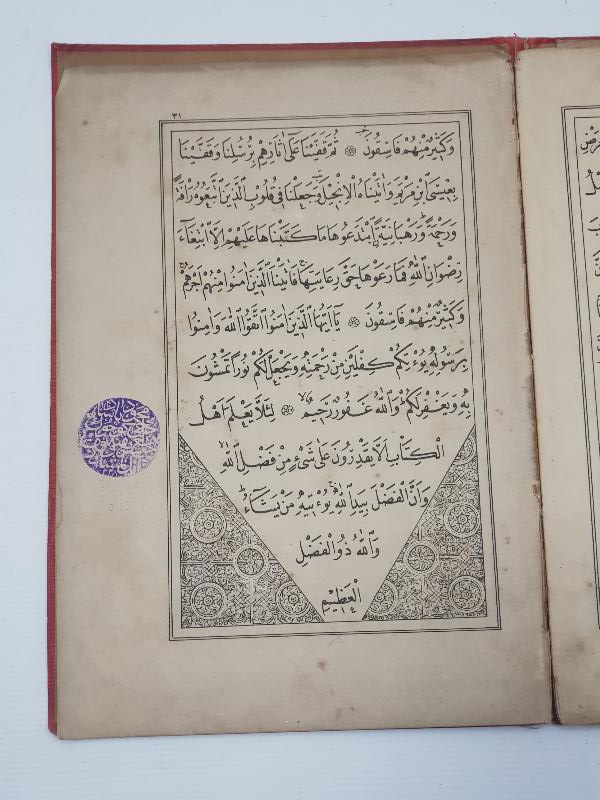 ٣١
وَكَثِيرٌ مِنْهُمْ فَاسِقُونَ ۞ ثُمَّ قَفَّيْنَا عَلٰٓى اٰثَارِهِمْ بِرُسُلِنَا وَقَفَّيْنَا
بِعِيسَى ابْنِ مَرْيَمَ وَاٰتَيْنَاهُ الْاِنْجِيلَ وَجَعَلْنَا فِى قُلُوبِ الَّذِينَ اتَّبَعُوهُ رَاْفَةً
وَرَحْمَةً وَرَهْبَانِيَّةً ابْتَدَعُوهَا مَا كَتَبْنَاهَا عَلَيْهِمْ اِلَّا ابْتِغَٓاءَ
رِضْوَانِ اللّٰهِ فَمَا رَعَوْهَا حَقَّ رِعَايَتِهَا فَاٰتَيْنَا الَّذِينَ اٰمَنُوا مِنْهُمْ اَجْرَهُمْ
وَكَثِيرٌ مِنْهُمْ فَاسِقُونَ ۞ يَٓا اَيُّهَا الَّذِينَ اٰمَنُوا اتَّقُوا اللّٰهَ وَاٰمِنُوا
بِرَسُولِهِ يُؤْتِكُمْ كِفْلَيْنِ مِنْ رَحْمَتِهِ وَيَجْعَلْ لَكُمْ نُورًا تَمْشُونَ
بِهِ وَيَغْفِرْ لَكُمْ وَاللّٰهُ غَفُورٌ رَحِيمٌ ۞ لِئَلَّا يَعْلَمَ اَهْلُ
الْكِتَابِ اَلَّا يَقْدِرُونَ عَلٰى شَىْءٍ مِنْ فَضْلِ اللّٰهِ
وَاَنَّ الْفَضْلَ بِيَدِ اللّٰهِ يُؤْتِيهِ مَنْ يَشَٓاءُ
وَاللّٰهُ ذُو الْفَضْلِ
الْعَظِيمِ
١٤